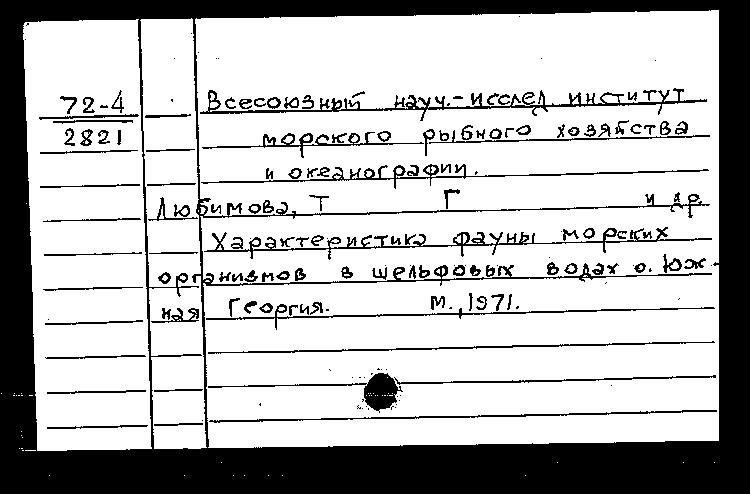 72-4 Всесоюзный науч.-исслед. институт
2821 морского рыбного хозяйства
и океанографии.
Любимова, Т Г и др.
Характеристика фауны морских
организмов в шельфовых водах о. Юж-
ная Георгия. М., 1971.